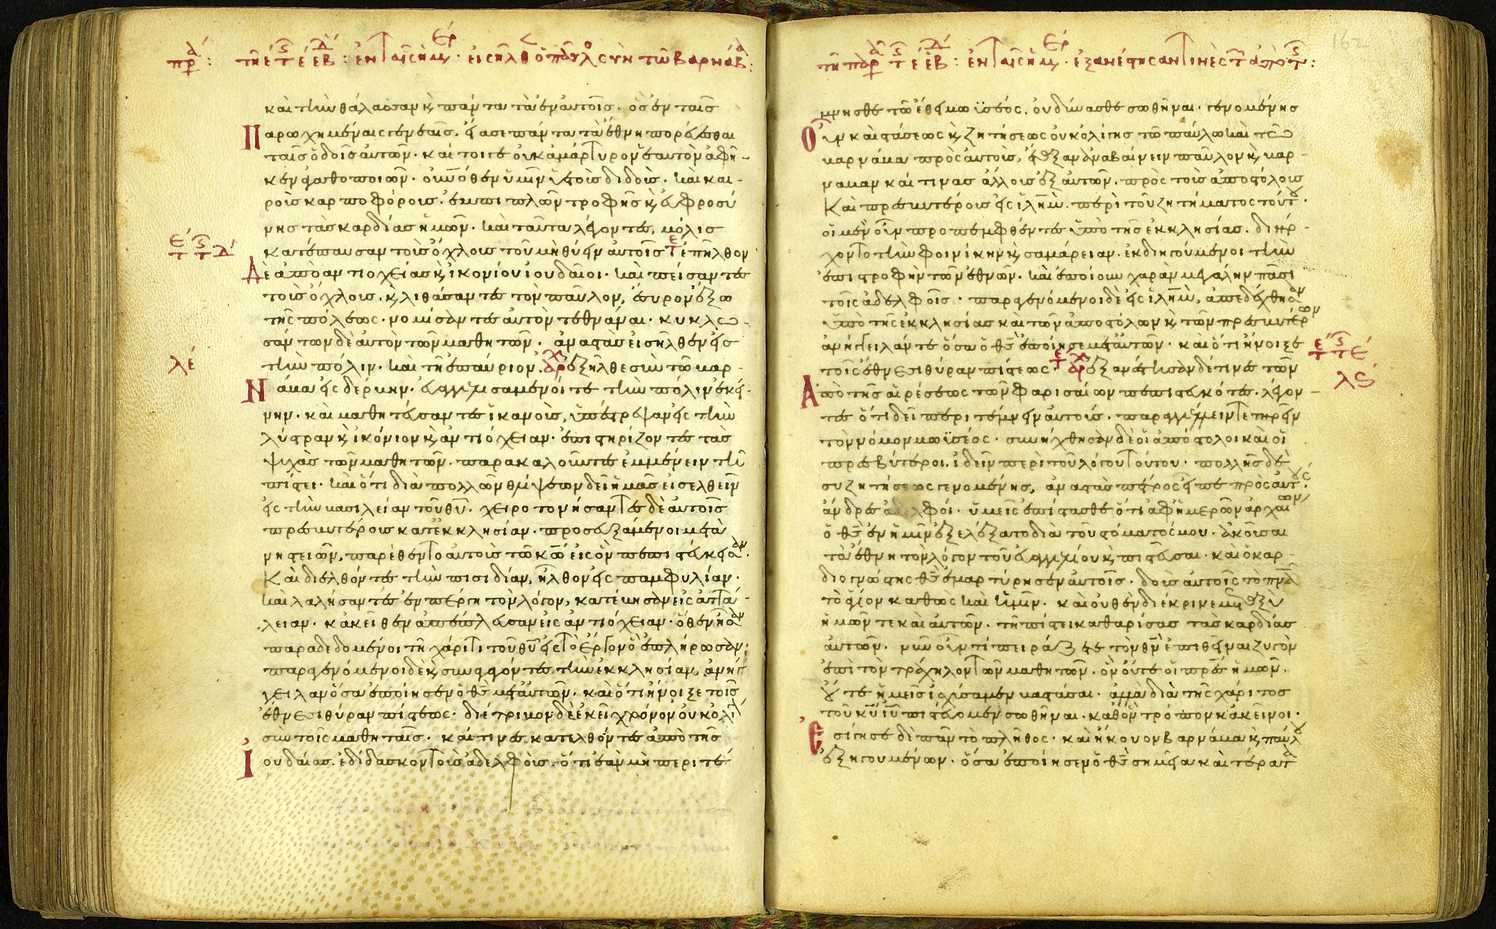 καὶ τὴν θάλασσαν κ πάντα τὰ ἐν αὐτοῖς· ὃς ἐν ταῖς
Παρωχημέναις γενεαῖς, εἴασε πάντα τὰ ἔθνη πορεύεσθαι
ταῖς ὁδοῖς αὐτῶν· καί τοιγε οὐκ ἀμάρτυρον ἑαυτὸν ἀφῆ-
κεν ἀγαθοποιῶν· οὐρανόθεν ὑμῖν ὑετοὺς διδοὺς· καὶ και-
ροὺς καρποφόρους· ἐμπιπλῶν τροφῆς κ εὐφροσύ
νης τὰς καρδίας ἡμῶν· καὶ ταῦτα λέγοντες, μόλις
κατέπαυσαν τοὺς ὄχλους τοῦ μὴ θύειν αὐτοῖς ἐπῆλθον
Δὲ ἀπὸ ἀντιοχείας κ ἰκονίου ἰουδαῖοι· καὶ πείσαντες
τοὺς ὄχλους κ λιθάσαντες τὸν παῦλον, ἔσυρον ἔξω
τῆς πόλεως· νομίσαντες αὐτὸν τεθνάναι· κυκλω-
σάντων δὲ αὐτὸν τῶν μαθητῶν· ἀναστὰς εἰσῆλθεν εἰς
τὴν πόλιν· καὶ τῇ ἐπαύριον ἐξῆλθε σὺν τῷ βαρ-
Νάβα εἰς δέρβην· εὐαγγελισάμενοί τε τὴν πόλιν ἐκεί-
νην· καὶ μαθητεύσαντες ἱκανοὺς, ὑπέστρεψαν εἰς τὴν
λύστραν κ ἰκόνιον κ ἀντιόχειαν· ἐπιστηρίζοντες τὰς
ψυχὰς τῶν μαθητῶν· παρακαλοῦντες ἐμμένειν τῇ
πίστει· καὶ ὅτι διὰ πολλῶν θλίψεων δεῖ ἡμᾶς εἰσελθεῖν
εἰς τὴν βασιλείαν τοῦ θυ· χειροτονήσαντες δὲ αὐτοῖς
πρεσβυτέρους κατ ἐκκλησίαν· προσευξάμενοι μετὰ
νηστειῶν, παρέθεντο αὐτοὺς τῷ κω εἰς ὃν πεπιστεύκεσαν·
Καὶ διελθόντες τὴν πισιδίαν, ἦλθον εἰς παμφυλίαν·
καὶ λαλήσαντες ἐν πέργῃ τὸν λόγον, κατέβησαν εἰς ἀττά-
λειαν· κἀκεῖθεν ἀπέπλευσαν εἰς ἀντιόχειαν· ὅθεν ἦσαν
παραδεδομένοι τῇ χάριτι τοῦ θυ εἰς τὸ ἔργον ὃ ἐπλήρωσαν·
παραγενόμενοι δὲ κ συναγαγόντες τὴν ἐκκλησίαν, ἀνήγ
γειλαν ὅσα ἐποίησεν ὁ θς μετ αὐτῶν· καὶ ὅτι ἤνοιξε τοῖς
ἔθνεσι θύραν πίστεως· διέτριβον δὲ ἐκεῖ χρόνον οὐκ ὀλίγον
σὺν τοῖς μαθηταῖς· καί τινες κατελθόντες ἀπὸ τῆς
Ιουδαίας ἐδίδασκον τοὺς ἀδελφοὺς· ὅτι ἐὰν μὴ περιτέ
μνησθε τῷ ἔθει μωϋσέος, οὐ δύνασθε σωθῆναι· γενομένης
Οὖν καὶ στάσεως κ ζητήσεως οὐκ ὀλίγης τῷ παύλῳ καὶ τῷ
βαρνάβα πρὸς αὐτοὺς, ἔταξαν ἀναβαίνειν παῦλον κ βαρ-
νάβαν καί τινας ἄλλους ἐξ αὐτῶν· πρὸς τοὺς ἀποστόλους
Καὶ πρεσβυτέρους εἰς ιλημ· περὶ τοῦ ζητήματος τούτου·
οἱ μὲν οὖν προπεμφθέντες ὑπὸ τῆς ἐκκλησίας· διήρ-
χοντο τὴν φοινίκην κ σαμάρειαν· ἐκδιηγούμενοι τὴν
ἐπιστροφὴν τῶν ἐθνῶν· καὶ ἐποίουν χαρὰν μεγάλην πᾶσι
τοῖς ἀδελφοῖς· παραγενόμενοι δὲ εἰς ιλημ, ἀπεδέχθησαν
ὑπὸ τῆς ἐκκλησίας καὶ τῶν ἀποστόλων κ τῶν πρεσβυτέρων
ἀνήγγειλάν τε ὅσα ὁ θς ἐποίησε μετ αὐτῶν· καὶ ὅτι ἤνοιξε
τοῖς ἔθνεσι θύραν πίστεως· ἐξανέστησαν δέ τινες τῶν
Ἀπὸ τῆς αἱρέσεως τῶν φαρισαίων πεπιστευκότες· λέγον-
τες ὅτι δεῖ περιτέμνειν αὐτοὺς· παραγγέλλειν τε τηρεῖν
τὸν νόμον μωϋσέος· συνήχθησαν δὲ οἱ ἀπόστολοι καὶ οἱ
πρεσβύτεροι ἰδεῖν περὶ τοῦ λόγου τούτου· πολλῆς δὲ
συζητήσεως γενομένης, ἀναστὰς πέτρος εἶπε πρὸς αὐτούς·
ἄνδρες ἀδελφοί· ὑμεῖς ἐπίστασθε ὅτι ἀφ ἡμερῶν ἀρχαίων
ὁ θς ἐν ἡμῖν ἐξελέξατο διὰ τοῦ στόματός μου· ἀκοῦσαι
τὰ ἔθνη τὸν λόγον τοῦ εὐαγγελίου κ πιστεῦσαι· καὶ ὁ καρ-
διογνώστης θς ἐμαρτύρησεν αὐτοῖς· δοὺς αὐτοῖς τὸ πνα
τὸ ἅγιον καθὼς καὶ ἡμῖν· καὶ οὐθὲν διέκρινε μεταξὺ
ἡμῶν τε καὶ αὐτῶν· τῇ πίστει καθαρίσας τὰς καρδίας
αὐτῶν· νῦν οὖν τί πειράζετε τὸν θν ἐπιθεῖναι ζυγὸν
ἐπὶ τὸν τράχηλον τῶν μαθητῶν· ὃν οὔτε οἱ πρες ἡμῶν·
οὔτε ἡμεῖς ἰσχύσαμεν βαστάσαι· ἀλλὰ διὰ τῆς χάριτος
τοῦ κυ ιυ πιστεύομεν σωθῆναι· καθ ὃν τρόπον κἀκεῖνοι·
Ἐσίγησε δὲ πᾶν τὸ πλῆθος· καὶ ἤκουον βαρνάβα κ παύλου
ἐξηγουμένων· ὅσα ἐποίησεν ὁ θς σημεῖα καὶ τέρατα
162